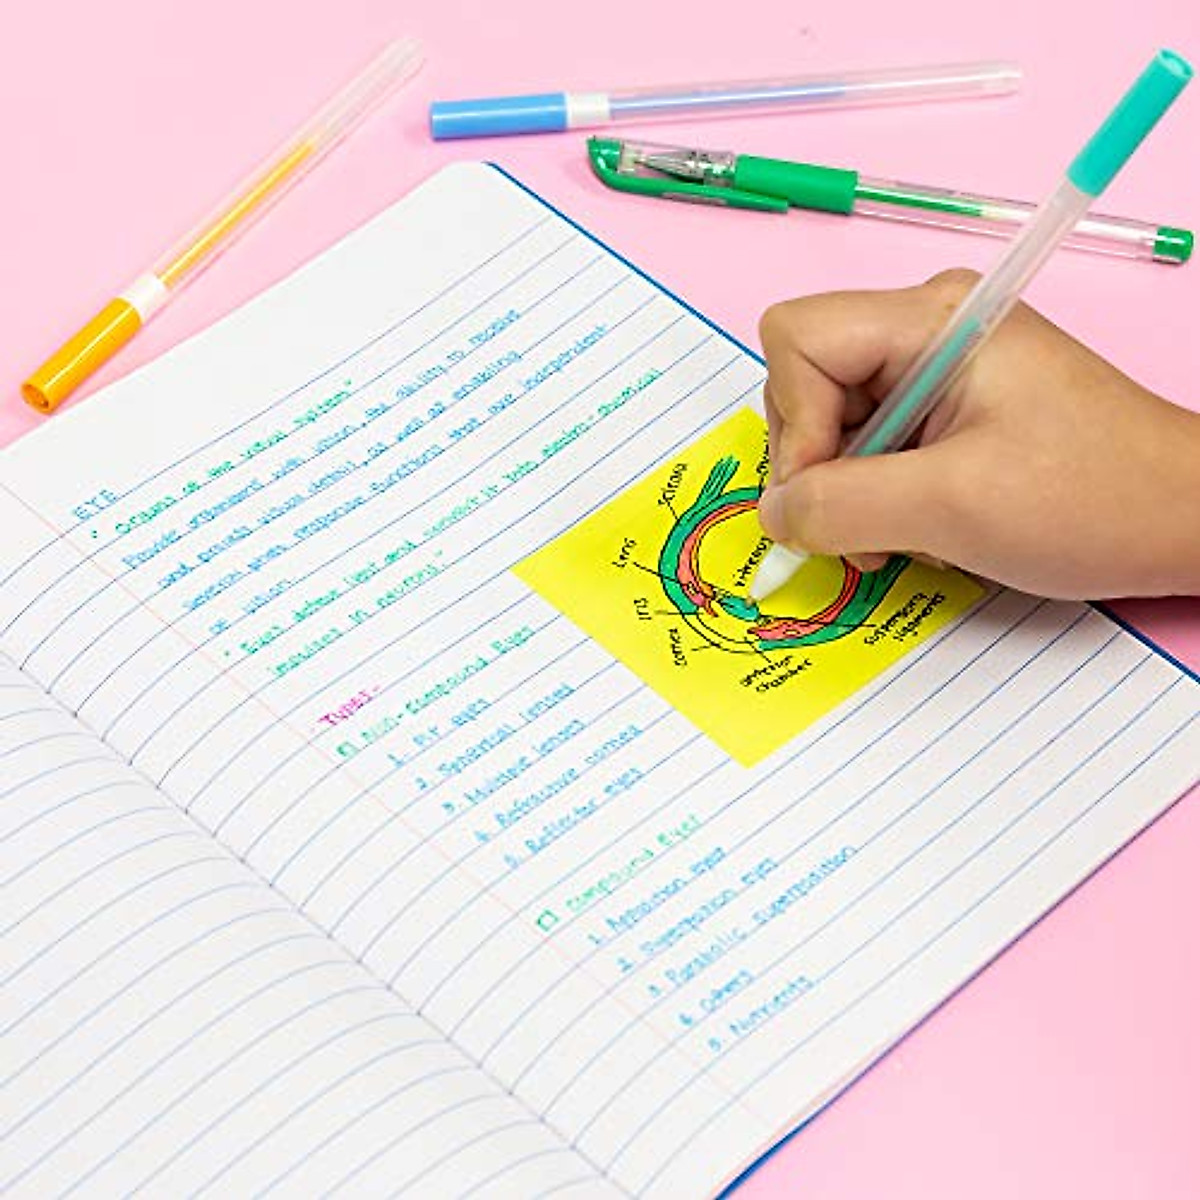 EYE
• Organs of the visual system"
Provide organisms with vision, the ability to receive
and process visual detail, as well as enabling
several photo response functions that are independent
of vision
" Eyes detect light and convert it into electro-chemical
impulses in neurons."
Types-
Non-compound Eyes
1. Pit eyes
2. Spherical lenses
3. Multiple lenses
4. Refractive cornea
5. Reflector eyes
compound eyes
1. Apposition eyes
2. Superposition eyes
3. Parabolic superposition
4. Others
5. Nutrients
sclera
Lens
Iris
cornea
anterior
chamber
suspensory
ligaments
vitreous